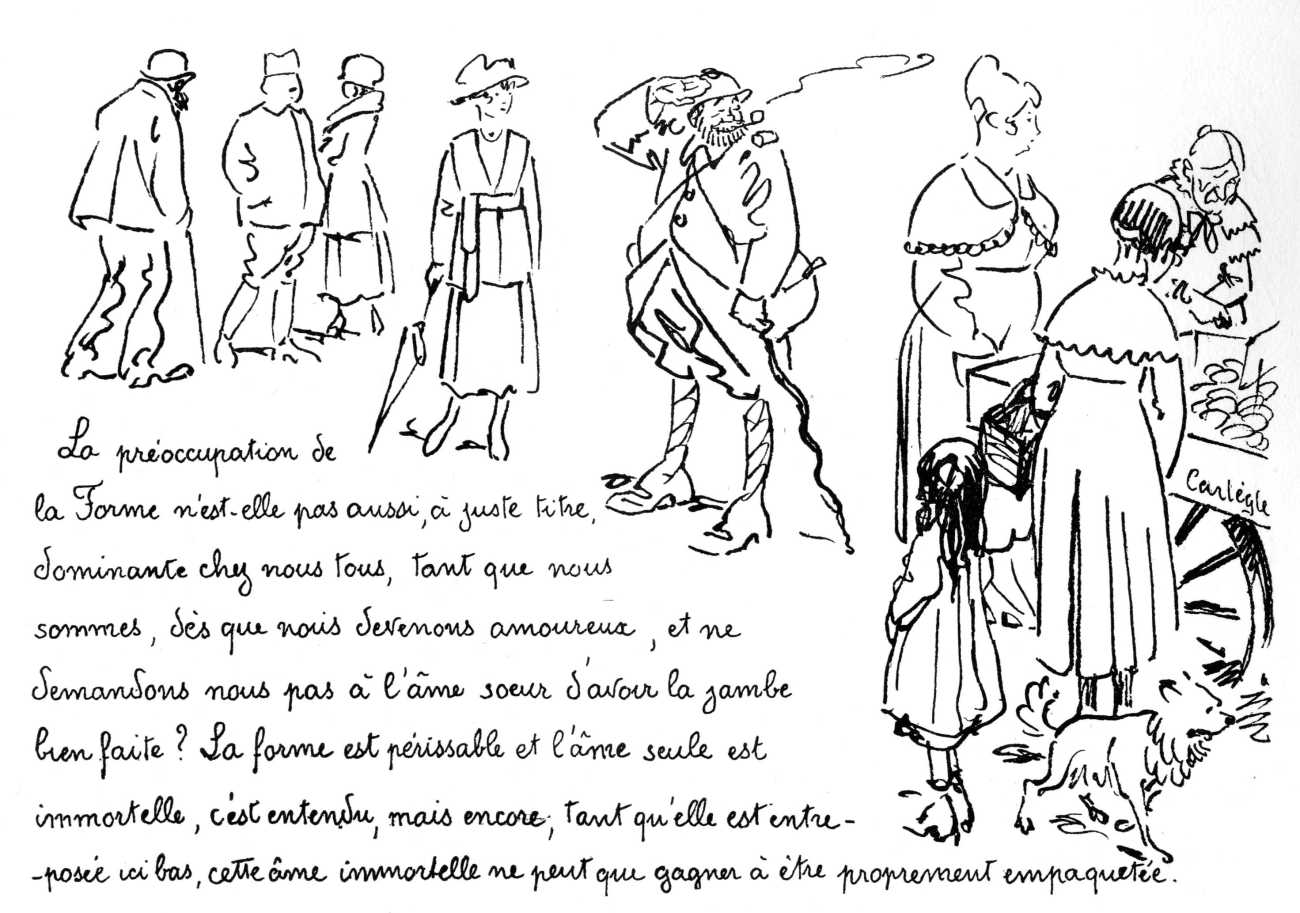 La préoccupation de
la Forme n'est-elle pas aussi, à juste titre,
dominante chez nous tous, tant que nous
sommes, dès que nous devenons amoureux, et ne
demandons nous pas à l'âme soeur d'avoir la jambe
bien faite ? La forme est périssable et l'âme seule est
immortelle, c'est entendu, mais encore, tant qu'elle est entre-
-posée ici bas, cette âme immortelle ne peut que gagner à être proprement empaquetée.
Carlègle